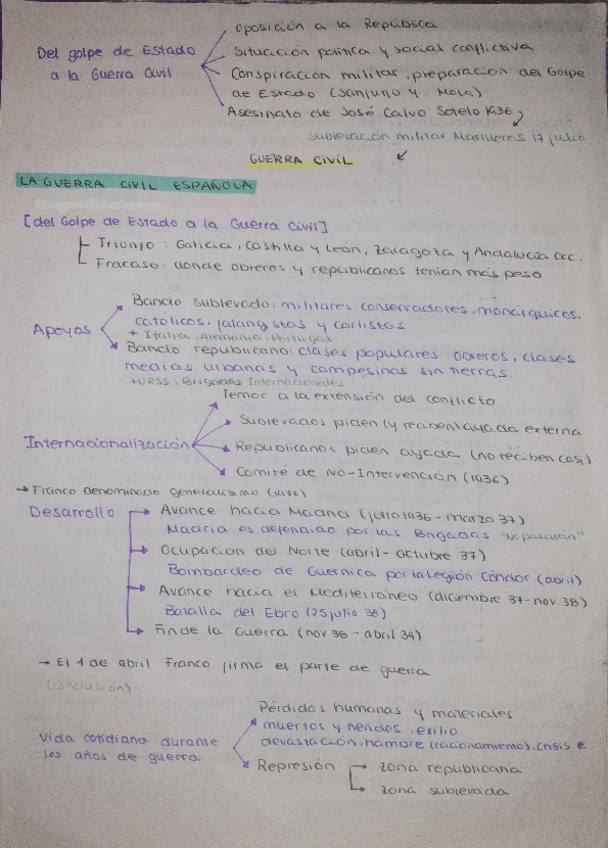 Oposición a la República
Del golpe de Estado
a la Guerra Civil
Situación política y social conflictiva
Conspiración militar, preparación del Golpe
de Estado (Sanjurjo y Mola)
Asesinato de José Calvo Sotelo 1936
Sublevación militar Marruecos 17 julio
GUERRA CIVIL
LA GUERRA CIVIL ESPAÑOLA
[del Golpe de Estado a la Guerra Civil]
Triunfo: Galicia, Castilla y León, Zaragoza y Andalucía occ.
Fracaso: donde obreros y republicanos tenían más peso
Apoyos
Bando sublevado: militares conservadores, monárquicos,
católicos, falangistas y carlistas
+ Italia, Alemania, Portugal
Bando republicano: clases populares obreros, clases
medias urbanas y campesinos sin tierras.
+URSS, Brigadas Internacionales
Internacionalización
Temor a la extensión del conflicto
Sublevados piden (y reciben) ayuda externa
Republicanos piden ayuda (no reciben casi)
Comité de No-Intervención (1936)
→ Franco denominado generalísimo
Desarrollo
Avance hacia Madrid (julio 1936 - marzo 37)
Madrid es defendido por las Brigadas "No pasarán"
Ocupación del Norte (abril - octubre 37)
Bombardeo de Guernica por la legión Cóndor (abril)
Avance hacia el Mediterráneo (diciembre 37-nov. 38)
Batalla del Ebro (25 julio 38)
Fin de la Guerra (nov 38 - abril 39)
→ El 1 de abril Franco firma el parte de guerra
(conclusión)
Vida cotidiana durante
los años de guerra
Pérdidas humanas y materiales
muertos y heridos, exilio
devastación, hambre (racionamiento), crisis e
Represión
zona republicana
zona sublevada